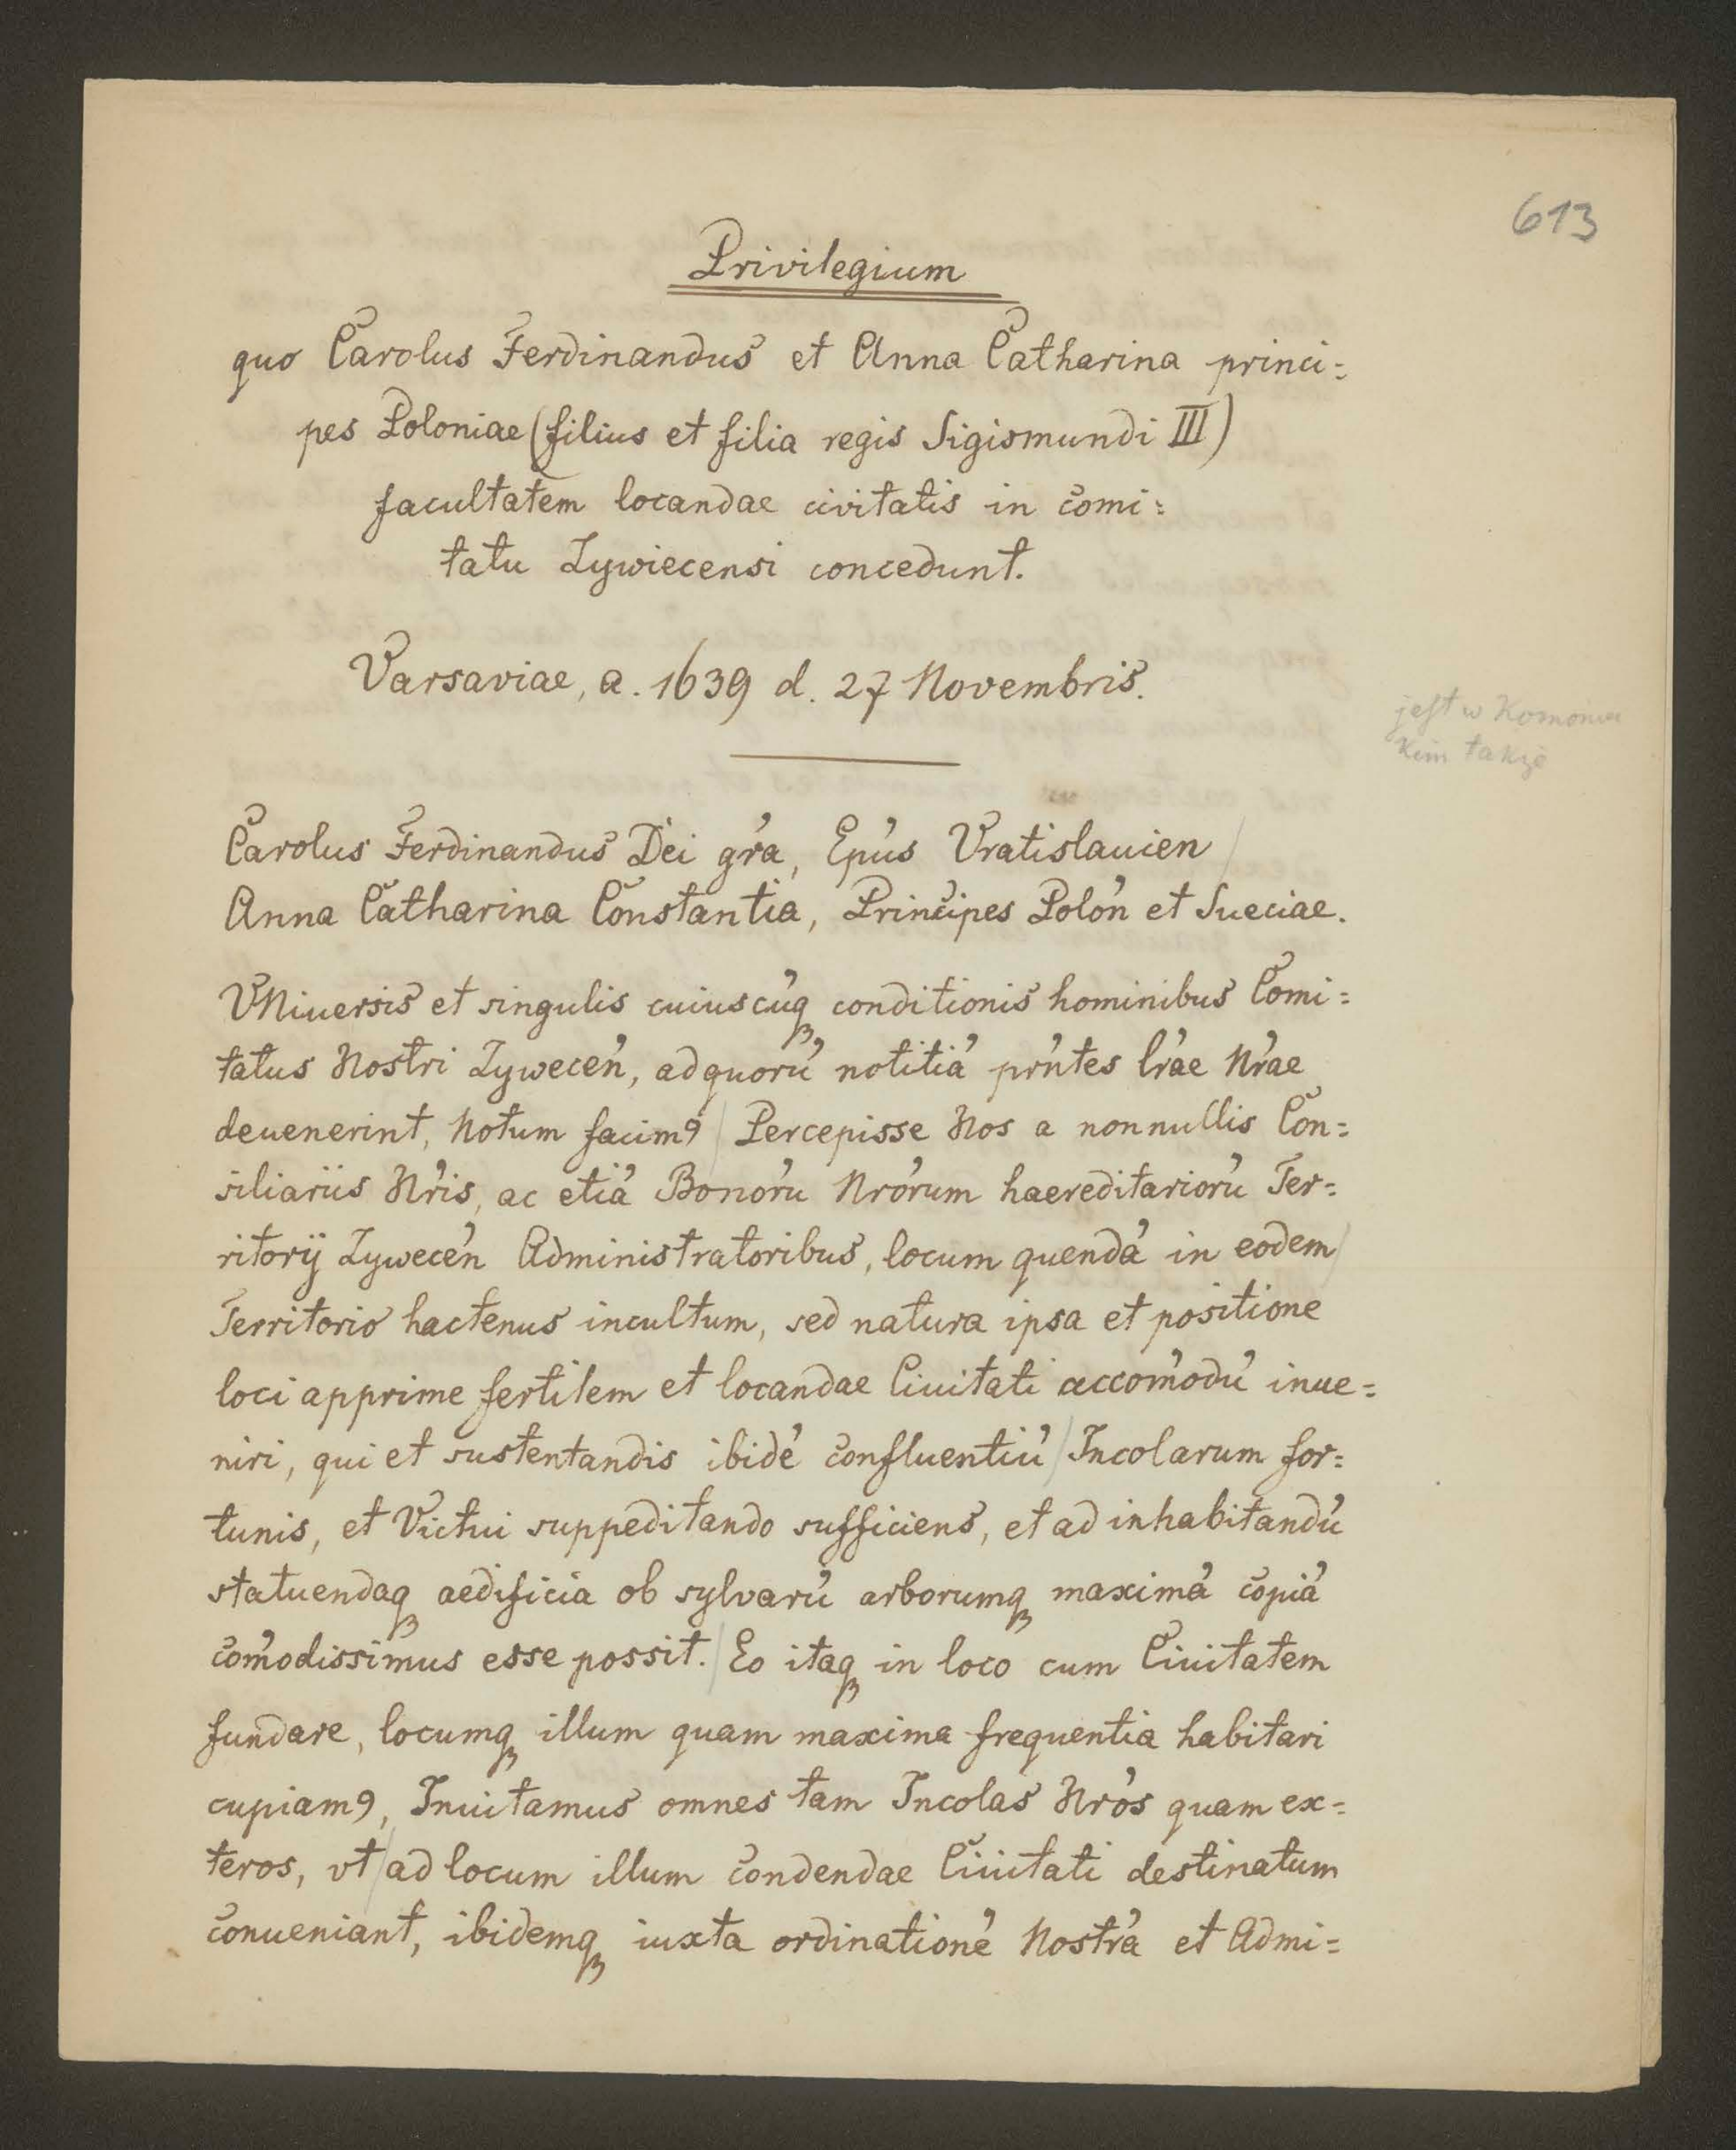 613
Privilegium
quo Carolus Ferdinandus et Anna Catharina princi=
pes Poloniae (filius et filia regis Sigismundi III)
facultatem locandae civitatis in comi=
tatu Zywiecensi concedunt.
Varsaviae, a. 1639 d. 27 Novembris.
jest w Komoniec
kim także
Carolus Ferdinandus Dei gr̓a, Ep̓us Vratislauien /
Anna Catharina Constantia, Principes Polon̓ et Sueciae.
VNiuersis et singulis cuiuscu̓qꝫ conditionis hominibus Comi=
tatus Nostri Zywecen̓, ad quoru̓ notitia̓ pr̓ntes lr̓ae Nr̓ae
deuenerint, Notum facimꝰ / Percepisse Nos a nonnullis Con=
siliariis Nr̓is, ac etia̓ Bonoru̓ Nr̓orum haereditarioru̓ Ter=
ritorij Zywecen̓ Administratoribus, locum quenda̓ in eodem /
Territorio hactenus incultum, sed natura ipsa et positione
loci apprime fertilem et locandae Ciuitati accom̓odu̓ inue=
niri, qui et sustentandis ibide̓ confluentiu̓ / Incolarum for=
tunis, et Victui suppeditando sufficiens, et ad inhabitandu̓
statuendaqꝫ aedificia ob sylvaru̓ arborumqꝫ maxima̓ copia̓
com̓odissimus esse possit. / Eo itaqꝫ in loco cum Ciuitatem
fundare, locumqꝫ illum quam maxima frequentia habitari
cupiamꝰ, Inuitamus omnes tam Incolas Nr̓os quam ex=
teros, vt / ad locum illum condendae Ciuitati destinatum
conueniant, ibidemqꝫ iuxta ordinatione̓ Nostra̓ et Admi=